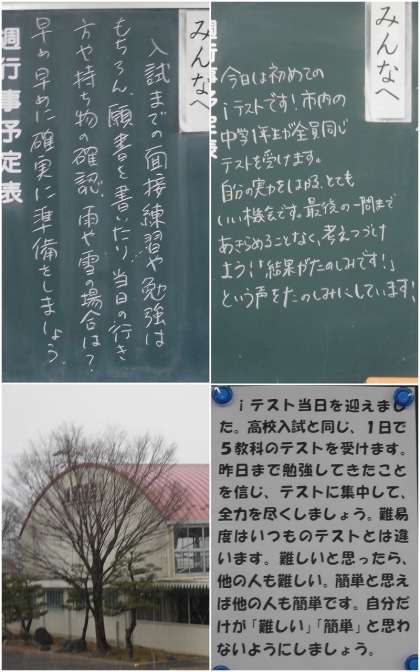 みんなへ
週行事予定表
入試までの面接練習や勉強は
もちろん、願書を書いたり、当日の行き
方や持ち物の確認、雨や雪の場合は?
早め早めに確実に準備をしましょう。
みんなへ
今日は初めての
iテストです!市内の
中学1年生が全員同じ
テストを受けます。
自分の実力をはかる、とても
いい機会です。最後の一問まで
あきらめることなく、考えつづけ
よう!「結果がたのしみです!」
という声をたのしみにしています!
iテスト当日を迎えまし
た。高校入試と同じ、1日で
5教科のテストを受けます。
昨日まで勉強してきたこと
を信じ、テストに集中して、
全力を尽くしましょう。難易
度はいつものテストとは違
います。難しいと思ったら、
他の人も難しい。簡単と思え
ば他の人も簡単です。自分だ
けが「難しい」「簡単」と思わ
ないようにしましょう。